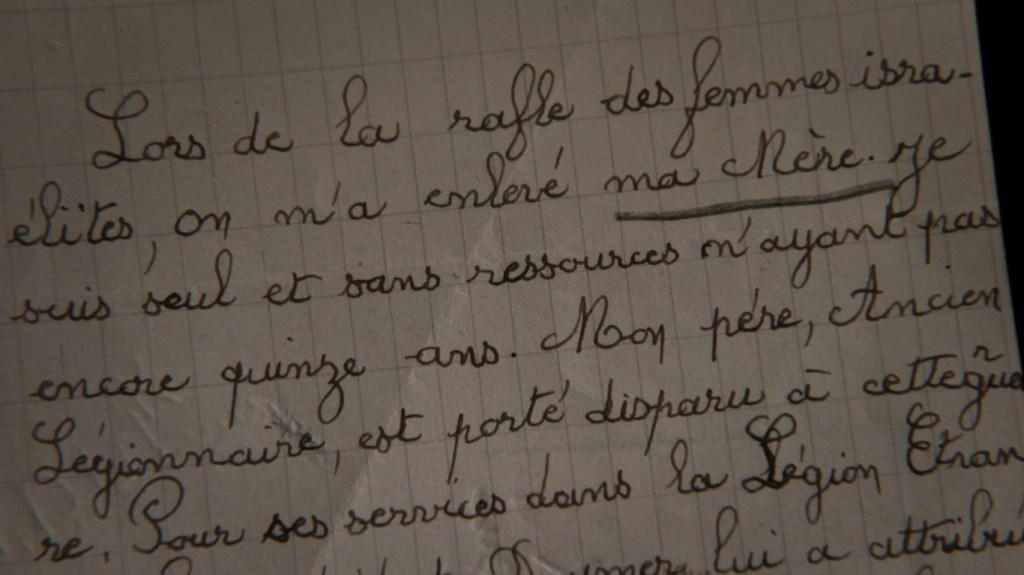 Lors de la rafle des femmes isra-
élïtes, on m'a enlevé ma Mère. Je
suis seul et sans ressources n'ayant pas
encore quinze ans. Mon père, Ancien
Légionnaire, est porté disparu à cette gue
re. Pour ses services dans la Légion Etran
lui a attribu